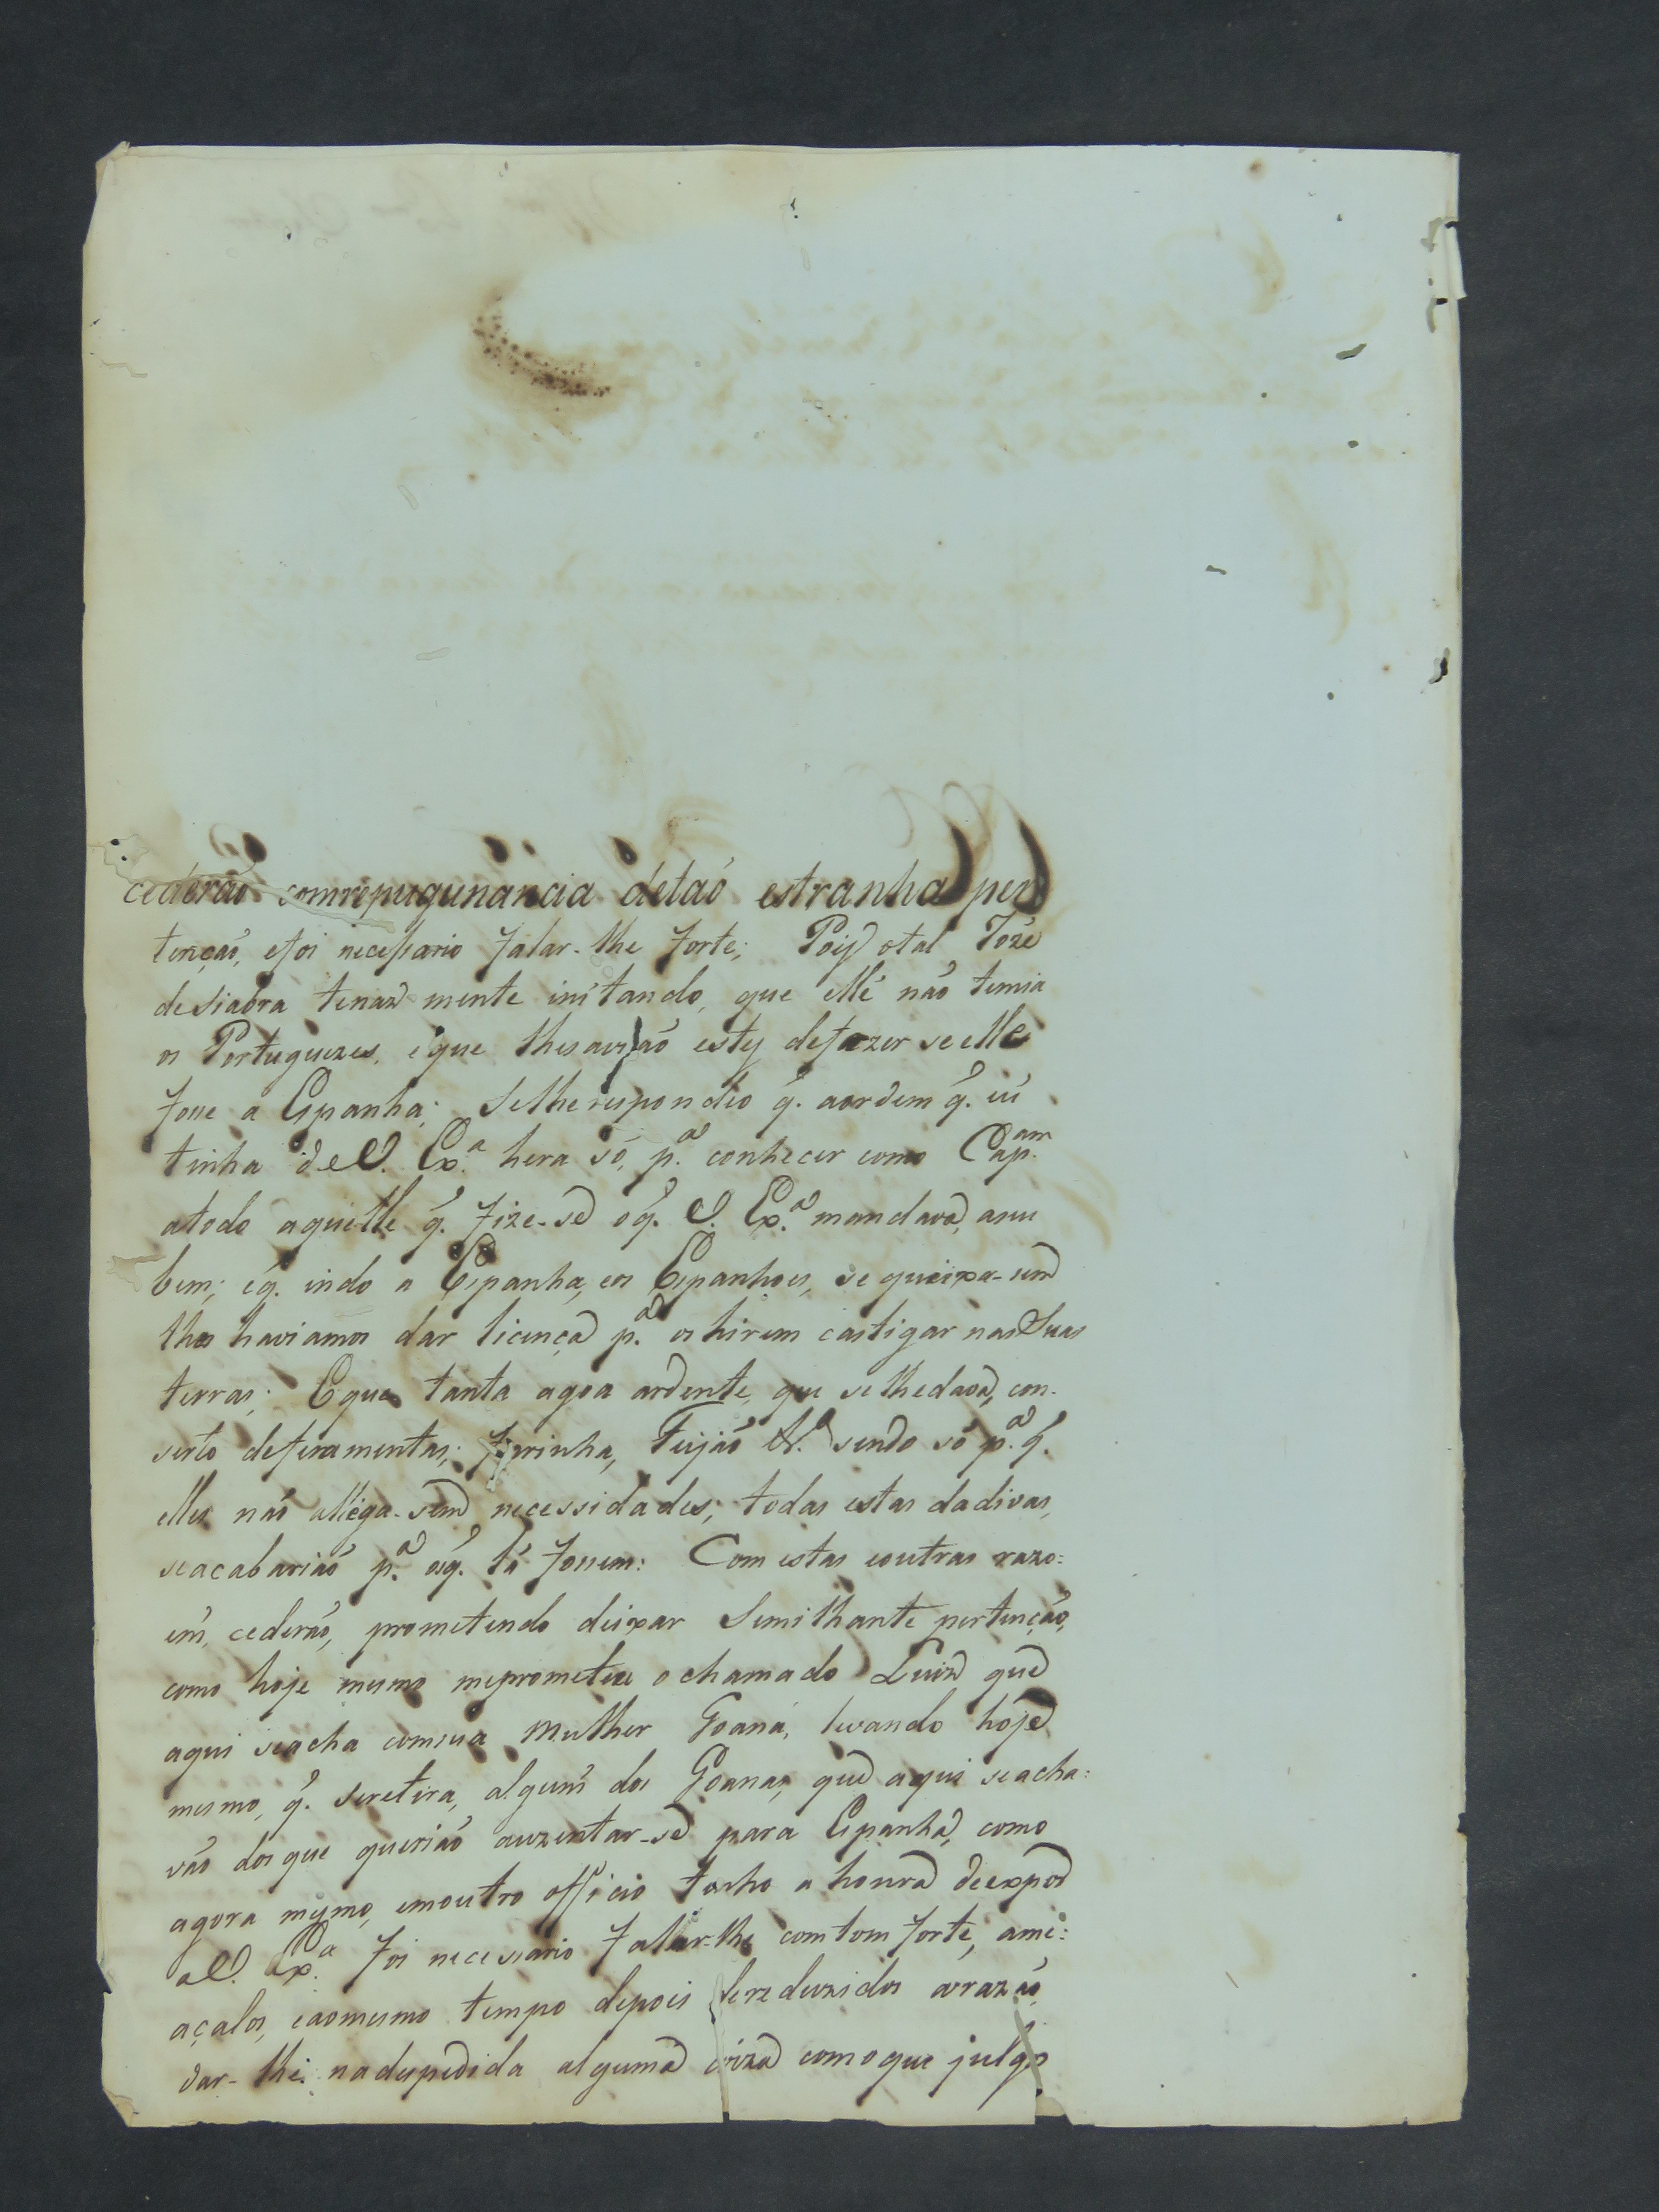 cederaó comrepugunancia detaó estranha per
tençaó, efoi necessario falar-lhe forte; Pois otal Joze
deSiabra tenaz mente instando, que elle naó temia
os Portuguezes, eque lhes aviaó estes defazer se elle
fosse a Espanha; Selherespondeo q. aordem q. eu
tinha deV. Ex.ª hera só, p.ª conhecer como Cap.am
atodo aquelle q. fize-se oq. V. Ex.ª mandava, aseu
bem; eq. indo a Espanha, eos Espanhoes, se queixa-sem
lhes haviamos dar licença p.ª os hirem castigar nasSuas
terras; Eque tanta agoa ardente, que selhedava, con-
serto deferamentas; farinha, Feijaó &.ª sendo só p.ª q.
elles naó allega-sem necessidades; todas estas dadivas,
seacabariaó p.ª osq. lá fossem: Com estas eoutras razo=
ens, cederaó, prometendo deixar Semilhante pertençaó,
como hoje mesmo meprometeu o chamado Luiz que
aqui seacha comsua Mulher Goaná, levando hoje
mesmo, q. seretira, alguns dos Goanas, que aqui seacha=
vaó dosque queriaó auzentar-se para Espanha, como
agora mesmo, emoutro officio tenho a honra deexpor
aV. Ex.ª foi necessario falar-lhe comtom forte, ame=
açalos, eaomesmo tempo depois serzeduzidos arazaó,
dar-lhe nadespedida alguma coiza comoque julgo